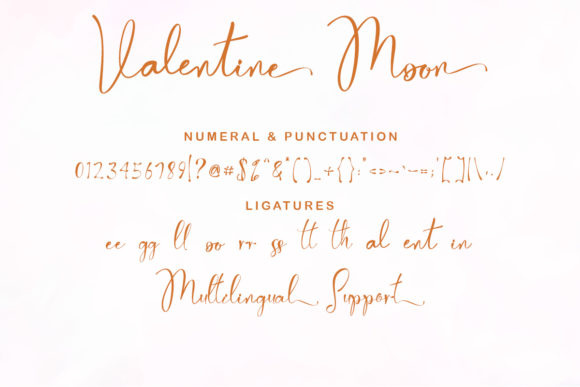 Valentine Moon
NUMERAL & PUNCTUATION
0123456789!?@#$%"&*()_+{}:"<>~`-=;'[]\|,./
LIGATURES
ee gg ll oo rr ss tt th al ent in
Multilingual Support